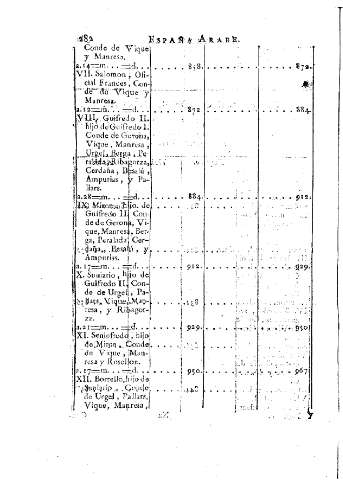 282 ESPAÑA ARABE.
Conde de Vique
y Manresa.
a.14=m. ...=d. ... 858. ... 872.
VII. Salomon, Ofi
cial Frances, Con
de de Vique y
Manresa.
a.12=m. ...=d. ... 872 ... 884.
VIII. Guifredo II.
hijo de Guifredo I.
Conde de Gerona,
Vique, Manresa,
Urgel, Berga, Pe
ralada, Ribagorza,
Cerdaña, Besalú,
Ampurias, y Pa
llars.
a.28=m. ...=d. ... 884 ... 912.
IX. Miron, hijo de
Guifredo II, Con
de de Gerona, Vi
que, Manresa, Ber
ga, Peralada, Cer
daña, Besalú, y
Ampurias.
a.17=m. ...=d. ... 912. ... 929.
X. Suniario, hijo de
Guifredo II, Con
de de Urgel, Pa
llars, Vique, Man
resa, y Ribagor
za.
a.21=m. ...=d. ... 929. ... 950.
XI. Seniofredo, hijo
de Miron, Conde
de Vique, Man
resa y Rosellon.
a.17=m. ...=d. ... 950. ... 967.
XII. Borrello, hijo de
Suniario, Conde
de Urgel, Pallars,
Vique, Manresa,